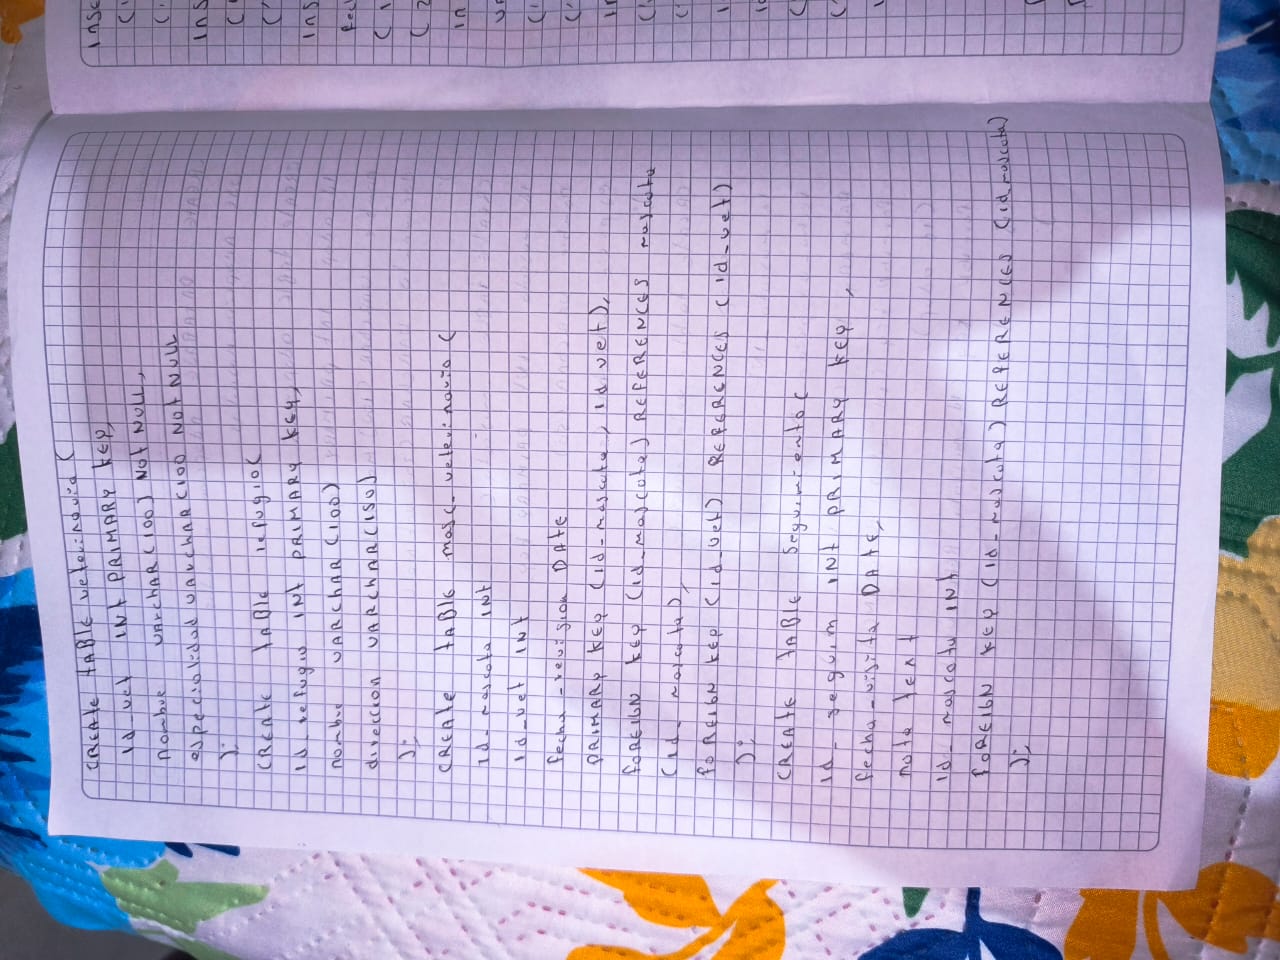 CREATE TABLE veterinaria (
id_vet INT PRIMARY KEY,
nombre VARCHAR(100) NOT NULL,
especialidad varchar(100 NOT NULL
);
CREATE TABLE refugio(
id_refugio INT PRIMARY KEY,
nombre VARCHAR(100)
direccion VARCHAR(150)
);
CREATE TABLE masc_veterinaria (
id_mascota INT
id_vet INT
fecha_revision DATE
PRIMARY KEY (id_mascota, id vet),
FOREIGN KEY (id_mascota) REFERENCES mascota
(id_mascota),
FOREIGN KEY (id_vet) REFERENCES (id_vet)
);
CREATE TABLE Seguimiento(
id_seguim INT PRIMARY KEY,
fecha_visita DATE,
nota text
id_mascota INT
FOREIGN KEY (id_mascota) REFERENCES (id mascota)
);